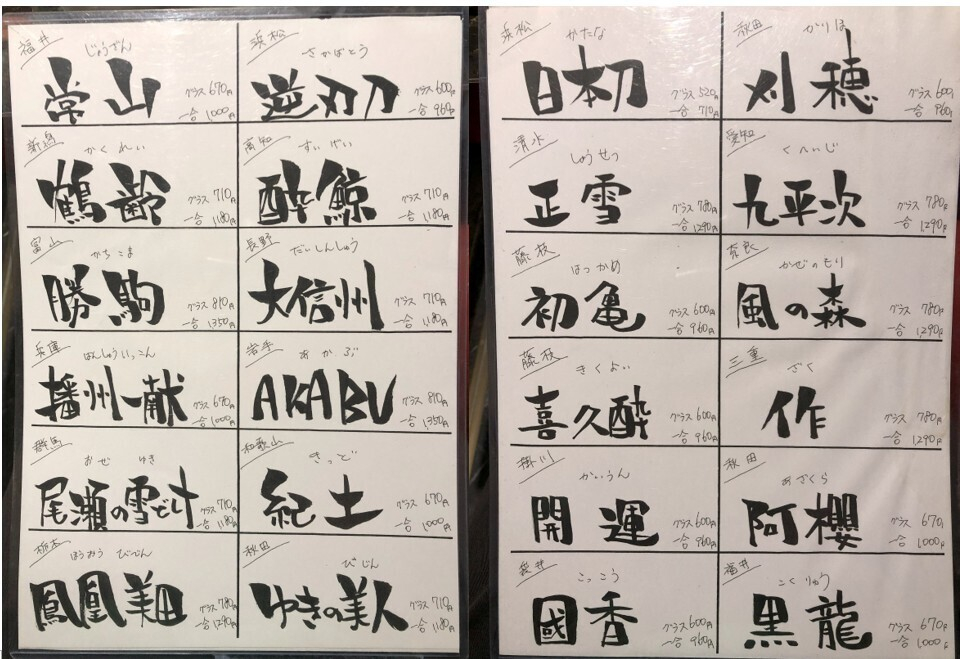 福井
じょうざん
常山
グラス 670円
一合 1000円
浜松
さかばとう
逆刃刀
グラス 600円
一合 960円
新潟
かくれい
鶴齢
グラス 710円
一合 1,180円
高知
すいげい
酔鯨
グラス 710円
一合 1,180円
富山
かちこま
勝駒
グラス 810円
一合 1350円
長野
だいしんしゅう
大信州
グラス 710円
一合 1,180円
兵庫
ばんしゅういっこん
播州一献
グラス 670円
一合 1000円
岩手
あかぶ
AKABU
グラス 810円
一合 1,350円
群馬
おぜ ゆき
尾瀬の雪どけ
グラス 710円
一合 1180円
和歌山
きっど
紀土
グラス 670円
一合 1000円
栃木
ほうおう びでん
鳳凰美田
グラス 780円
一合 1290円
秋田
びじん
ゆきの美人
グラス 710円
一合 1180円
浜松
かたな
日本刀
グラス 520円
一合 710円
秋田
かりほ
刈穂
グラス 600円
一合 960円
清水
しょうせつ
正雪
グラス 780円
一合 1,290円
愛知
くへいじ
九平次
グラス 780円
一合 1,290円
藤枝
はつかめ
初亀
グラス 600円
一合 960円
奈良
かぜのもり
風の森
グラス 780円
一合 1,290円
藤枝
きくよい
喜久酔
グラス 600円
一合 960円
三重
ざく
作
グラス 780円
一合 1,290円
掛川
かいうん
開運
グラス 600円
一合 960円
秋田
あざくら
阿櫻
グラス 670円
一合 1,000円
袋井
こっこう
國香
グラス 600円
一合 960円
福井
こくりゅう
黒龍
グラス 670円
一合 1,000円